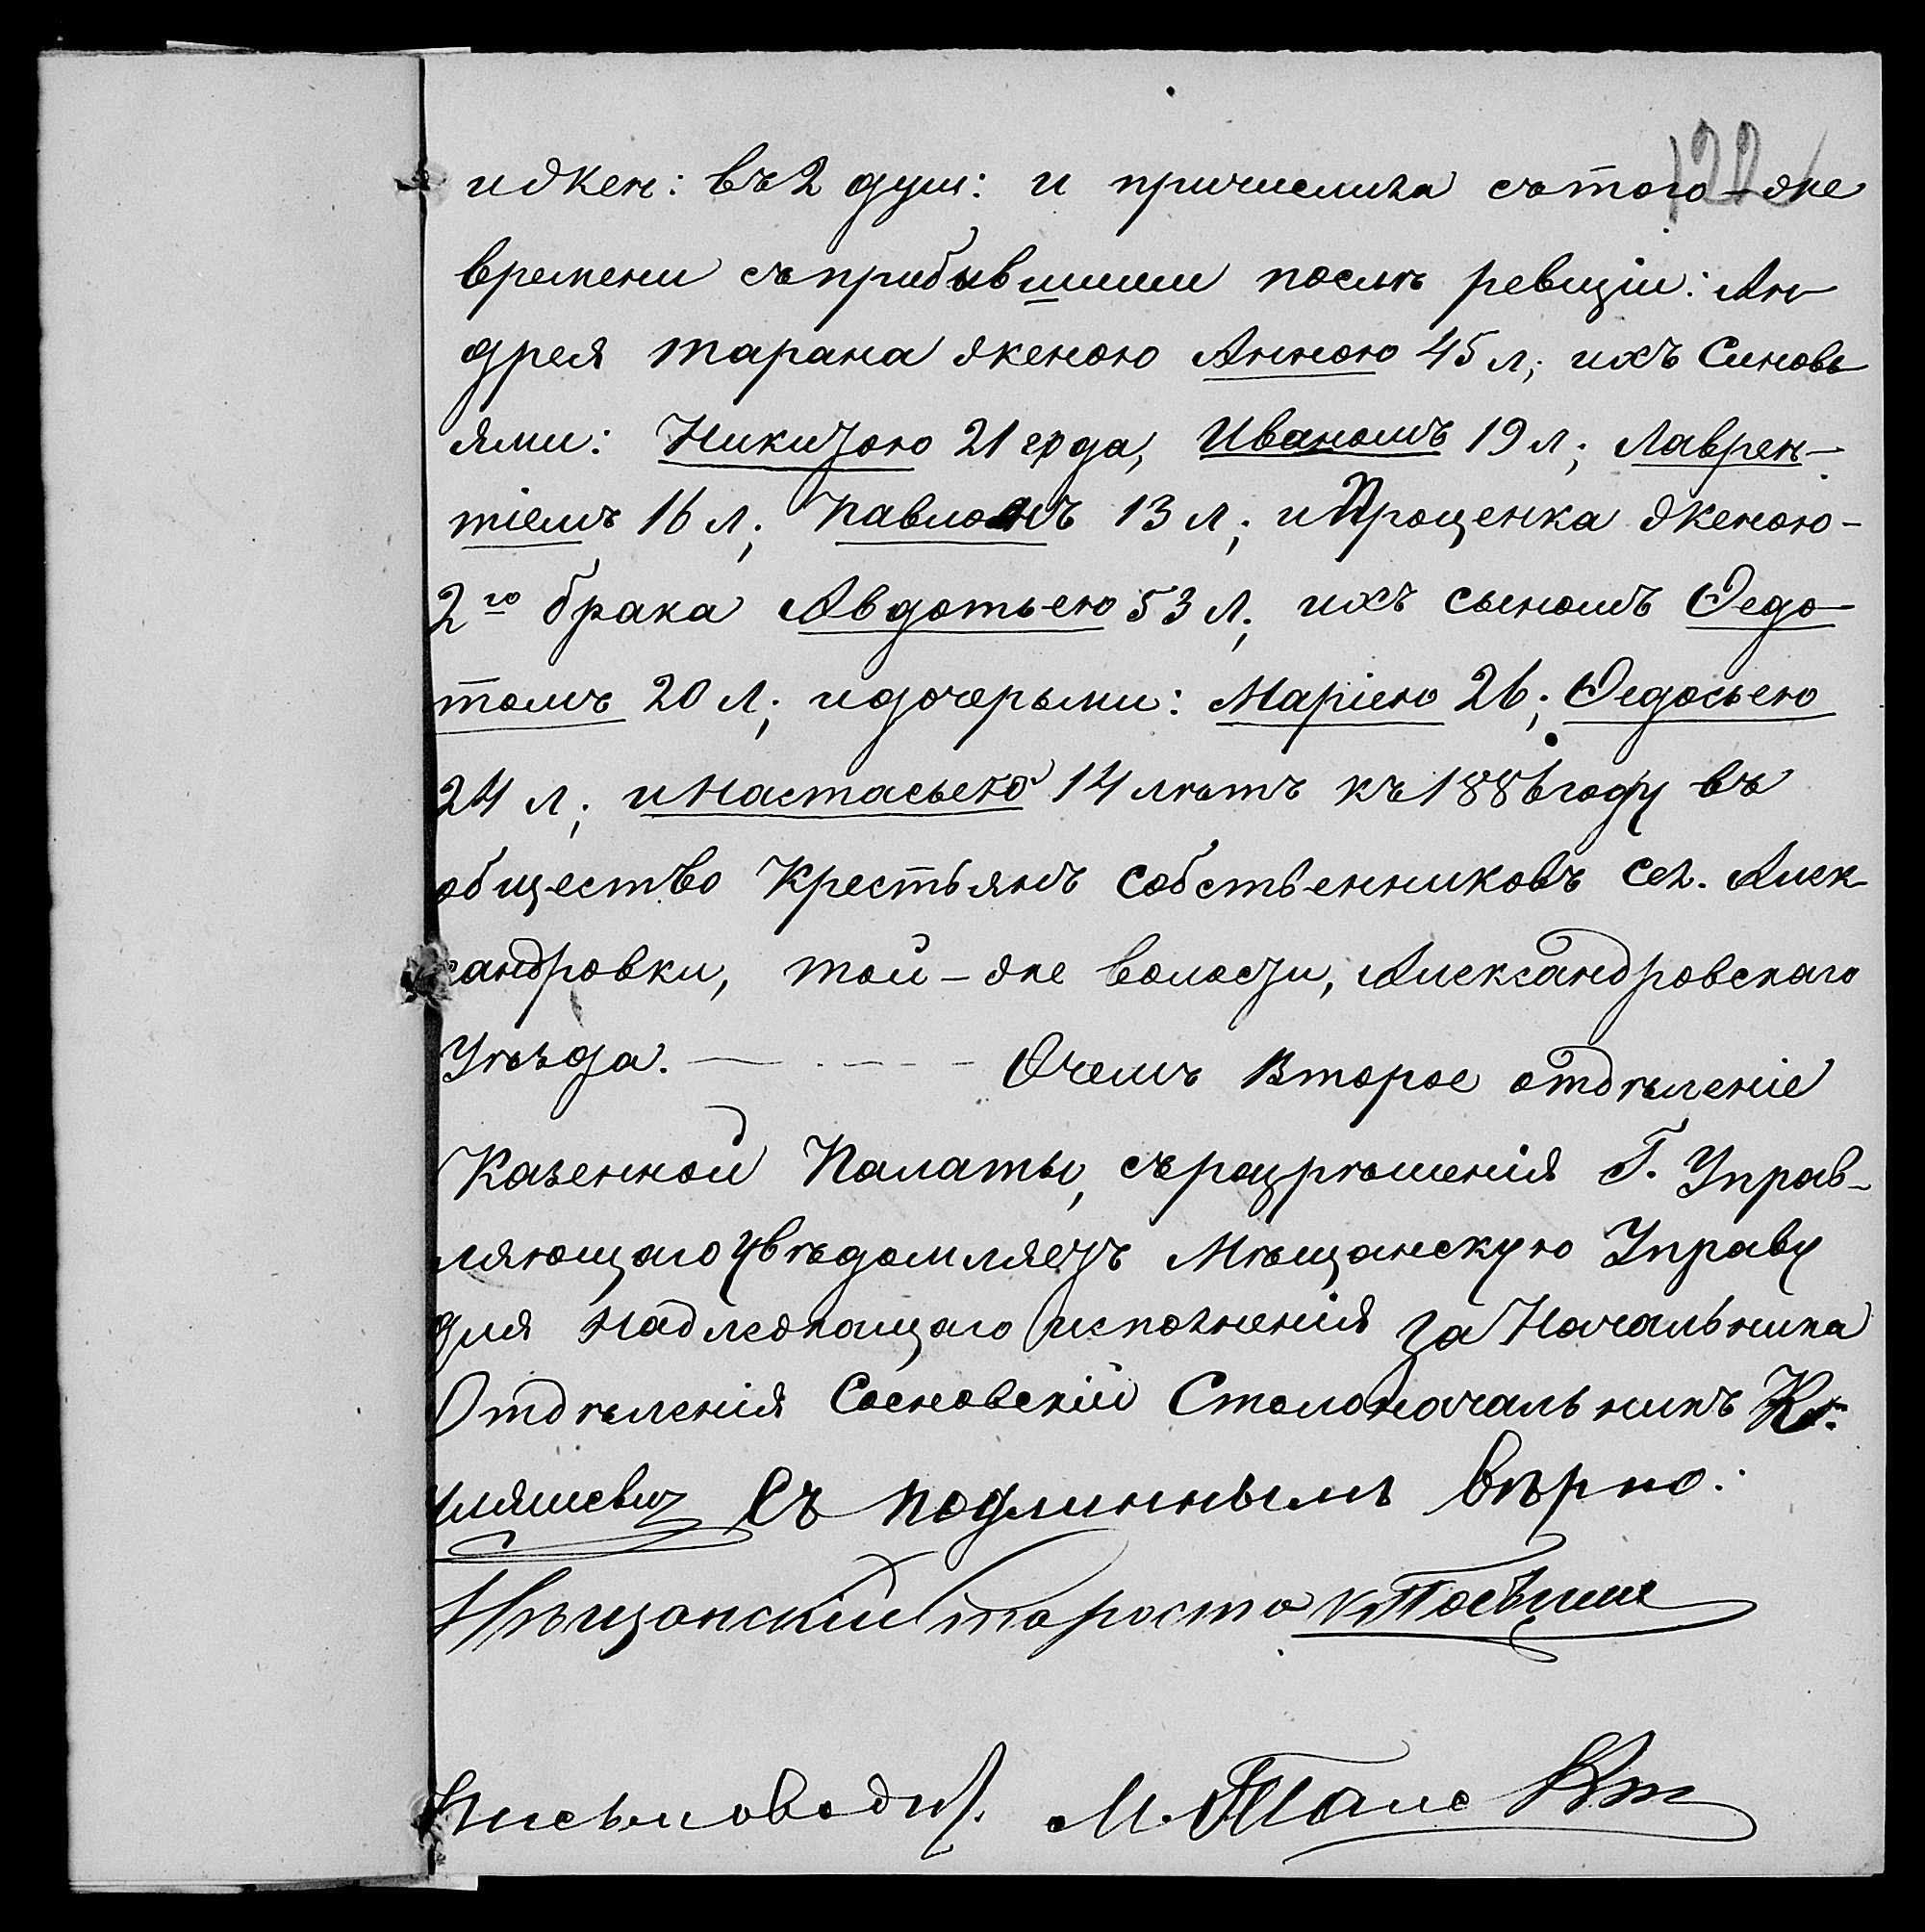 122
и жен: въ 2 душ: и причислила съ того-же
времени съ прибывшими послѣ ревизіи: Ан
дрея Тарана женою Анною 45 л; ихъ синовь
ями: Никитою 21 года, Иваномъ 19 л; Лаврен-
тіемъ 16 л; Павломъ 13 л; и Проценка женою-
2го брака Авдотьею 53 л; ихъ сыномъ Ѳедо-
томъ 20 л; и дочерьми: Маріею 26; Ѳедосьею
24 л; и Настасьею 14 лѣтъ къ 1886 году въ
общество Крестьянъ собственниковъ сел. Алек-
сандровки, той-же волости, Александровскаго
Уѣзда. О чемъ Второе отдѣленіе
Казенной Палаты, съ разрѣшенія Г. Управ-
ляющаго увѣдомляетъ Мѣщанскую Управу
для надлежащаго исполненія за Начальника
Отдѣленія Сосновскій Столоначальникъ
Съ подлиннымъ вѣрно:
Мѣщанскій Староста
Письмовод. М.